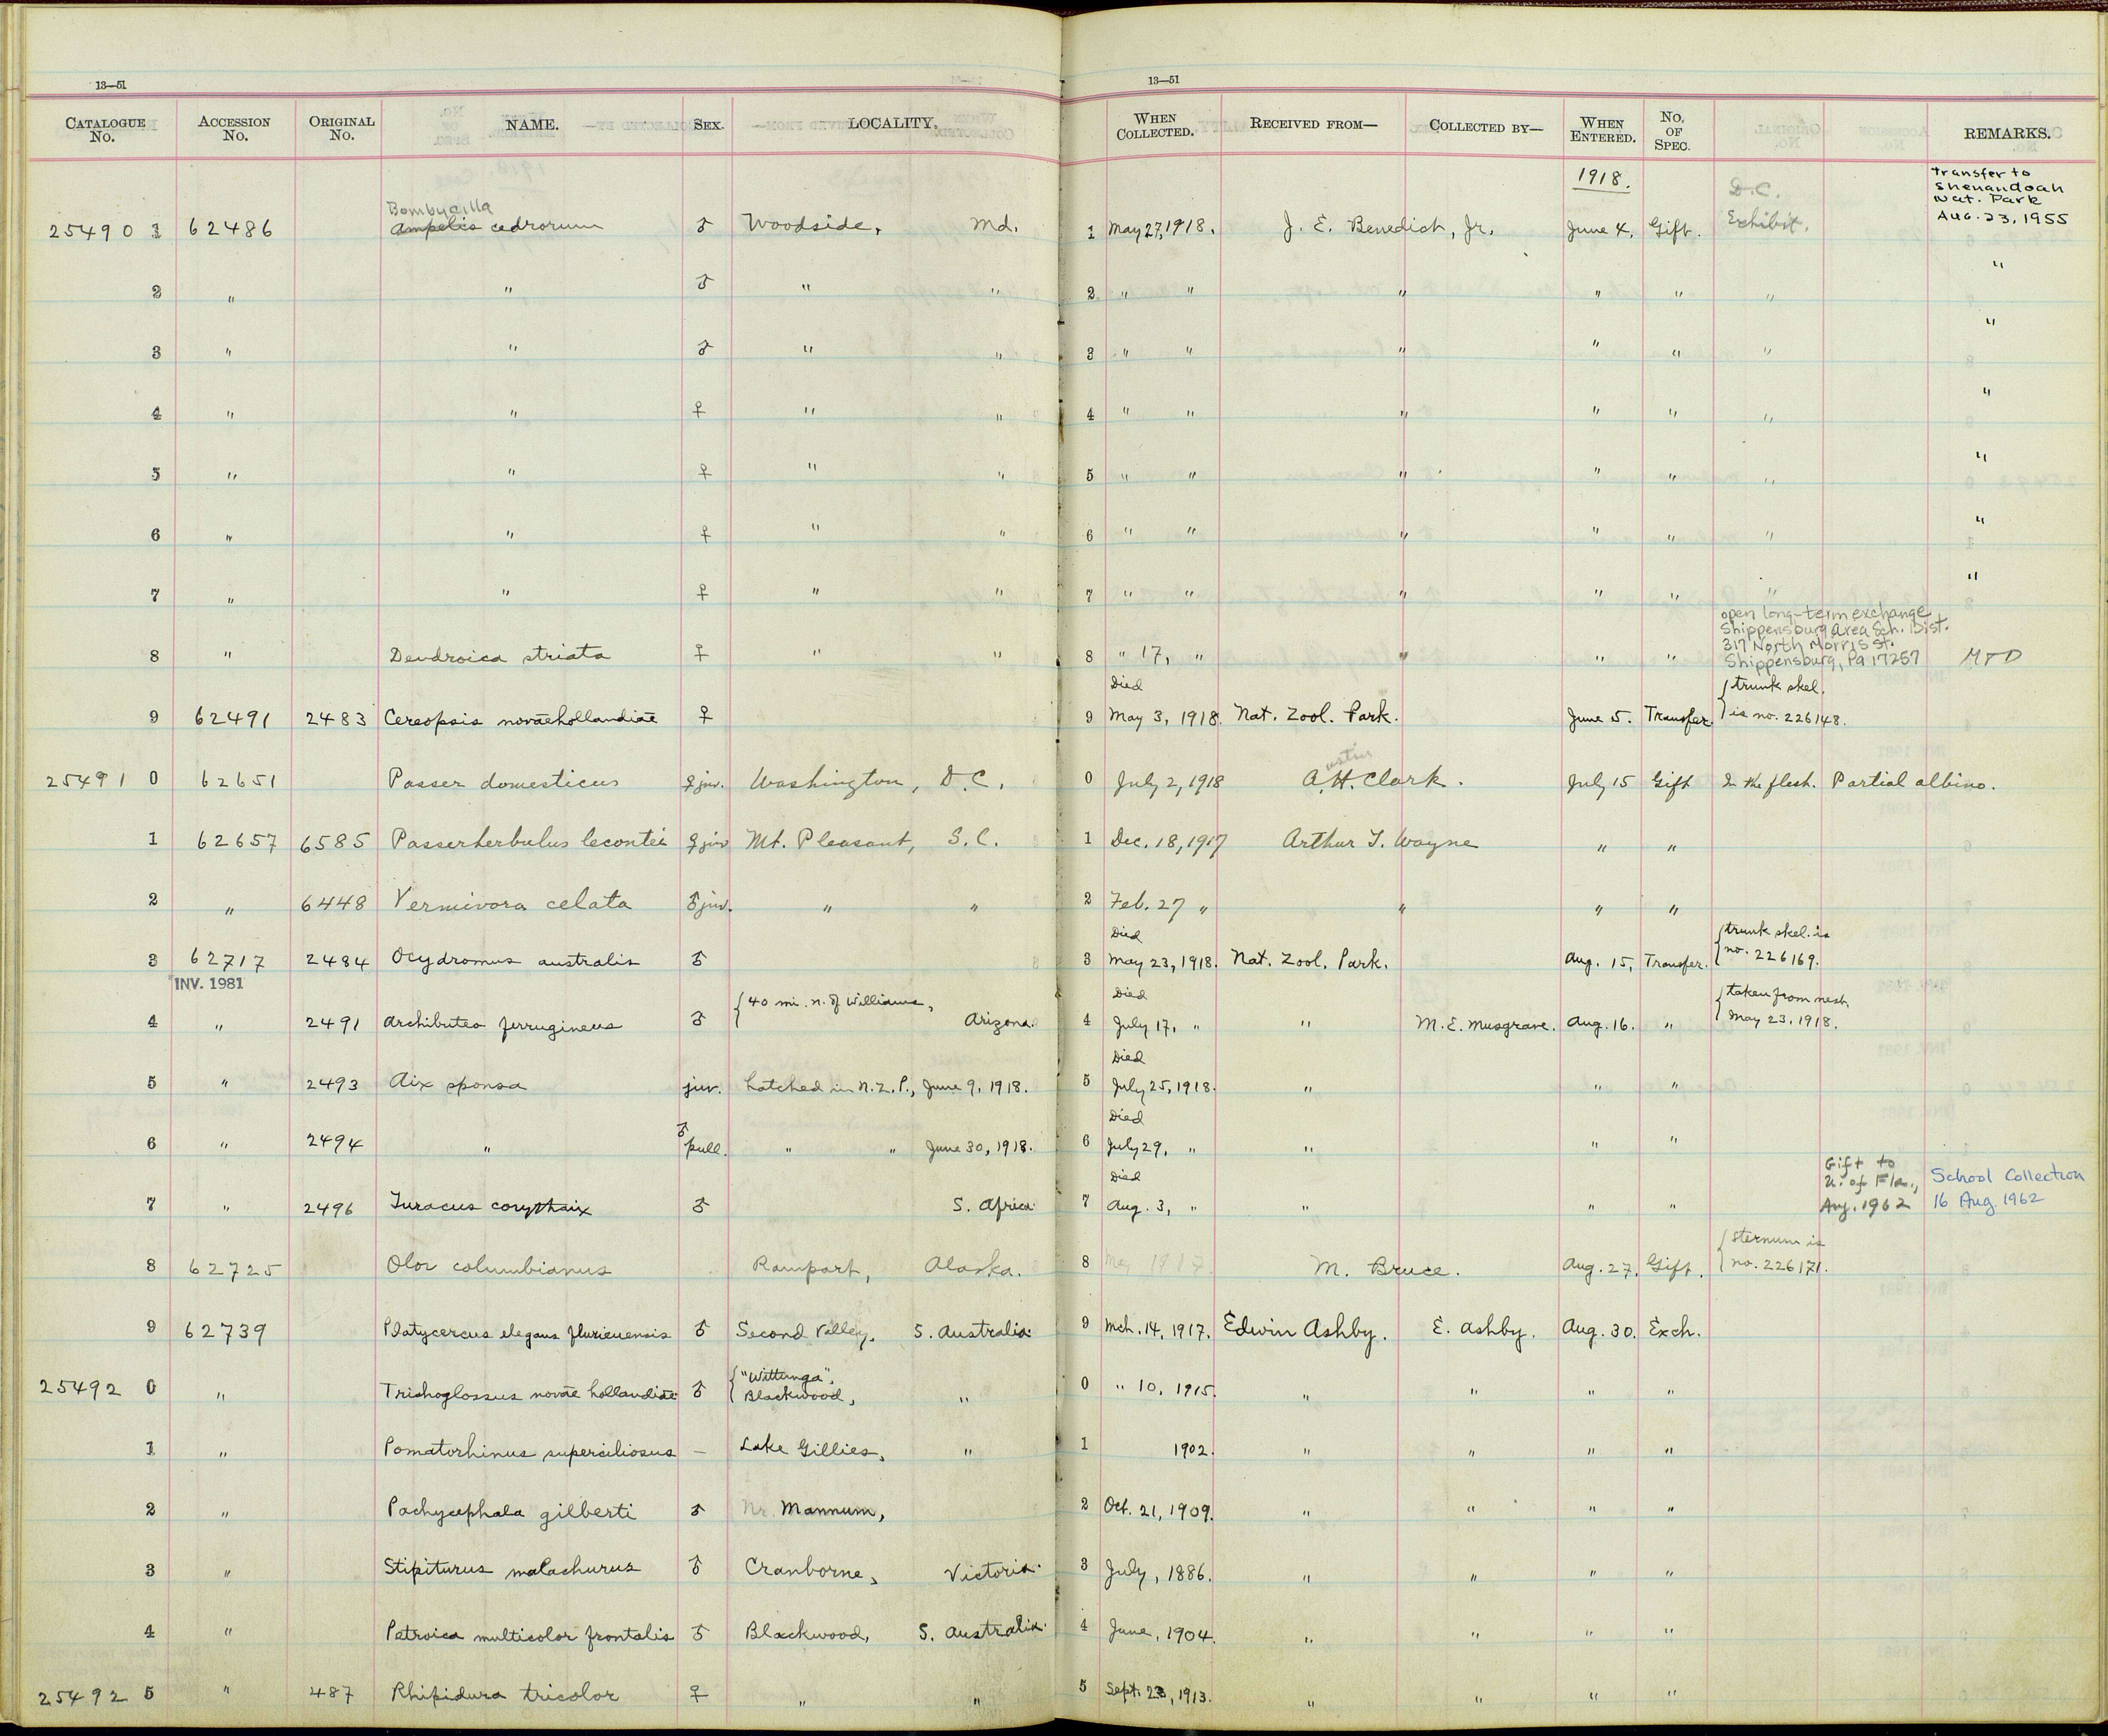 13—51
CATALOGUE No. ACCESSION No. ORIGINAL No. NAME. SEX. LOCALITY.
13—51
WHEN COLLECTED. RECEIVED FROM— COLLECTED BY— WHEN ENTERED. No. OF SPEC. REMARKS.
1918. D.C. transfer to
Shenandoah
Nat. Park
Bombycilla
25490 1 62486 Ampelis cedrorum ♂ Woodside, Md. 1 May 27, 1918. J. E. Benedict, Jr. June 4. Gift. Exhibit. Aug. 23, 1955
2 " " ♂ " " 2 " " " " " " "
3 " " ♂ " " 3 " " " " " " "
4 " " ♀ " " 4 " " " " " " "
5 " " ♀ " " 5 " " " " " " "
6 " " ♀ " " 6 " " " " " " "
7 " " ♀ " " 7 " " " " " " "
open long-term exchange
Shippensburg Area Sch. Dist.
317 North Morris St.
8 " Dendroica striata ♀ " " 8 " 17, " " " " Shippensburg, Pa 17257
Died { trunk skel.
9 62491 2483 Cereopsis novaehollandiae ♀ 9 May 3, 1918. Nat. Zool. Park. June 5. Transfer. is no. 226148.
ustin
25491 0 62651 Passer domesticus ♀ juv. Washington, D.C. 0 July 2, 1918 A. H. Clark. July 15 Gift In the flesh. Partial albino.
1 62657 6585 Passerherbulus lecontei ♀ juv Mt. Pleasant, S.C. 1 Dec. 18, 1917 Arthur T. Wayne " "
2 " 6448 Vermivora celata ♂ juv. " " 2 Feb. 27 " " " "
Died { trunk skel. is
3 62717 2484 Ocydromus australis ♂ 3 May 23, 1918. Nat. Zool. Park. Aug. 15, Transfer. no. 226169.
INV. 1981
{ 40 mi. n. of Williams, Died { taken from nest
4 " 2491 Archibuteo ferrugineus ♂ Arizona. 4 July 17, " " M. E. Musgrave. Aug. 16. " May 23, 1918.
Died
5 " 2493 Aix sponsa juv. hatched in N.Z.P., June 9, 1918. 5 July 25, 1918. " " "
Died
6 " 2494 " ♂ pull. " " June 30, 1918. 6 July 29, " " " "
Died Gift to
U. of Fla., School Collection
7 " 2496 Turacus corythaix ♂ S. Africa. 7 Aug. 3, " " " " Aug. 1962 16 Aug. 1962
{ sternum is
8 62725 Olor columbianus Rampart, Alaska. 8 May 1917. M. Bruce. Aug. 27. Gift. no. 226171.
9 62739 Platycercus elegans fleurieuensis ♂ Second Valley, S. Australia. 9 Mch. 14, 1917. Edwin Ashby. E. Ashby. Aug. 30. Exch.
{ "Wittunga",
25492 0 " Trichoglossus novae hollandiae ♂ Blackwood, " 0 " 10, 1915. " " " "
1 " Pomatorhinus superciliosus – Lake Gillies, " 1 1902. " " " "
2 " Pachycephala gilberti ♂ Nr. Mannum, 2 Oct. 21, 1909. " " " "
3 " Stipiturus malachurus ♂ Cranborne, Victoria. 3 July, 1886. " " " "
4 " Petroica multicolor frontalis ♂ Blackwood, S. Australia. 4 June, 1904. " " " "
25492 5 " 487 Rhipidura tricolor ♀ " " 5 Sept. 23, 1913. " " " "